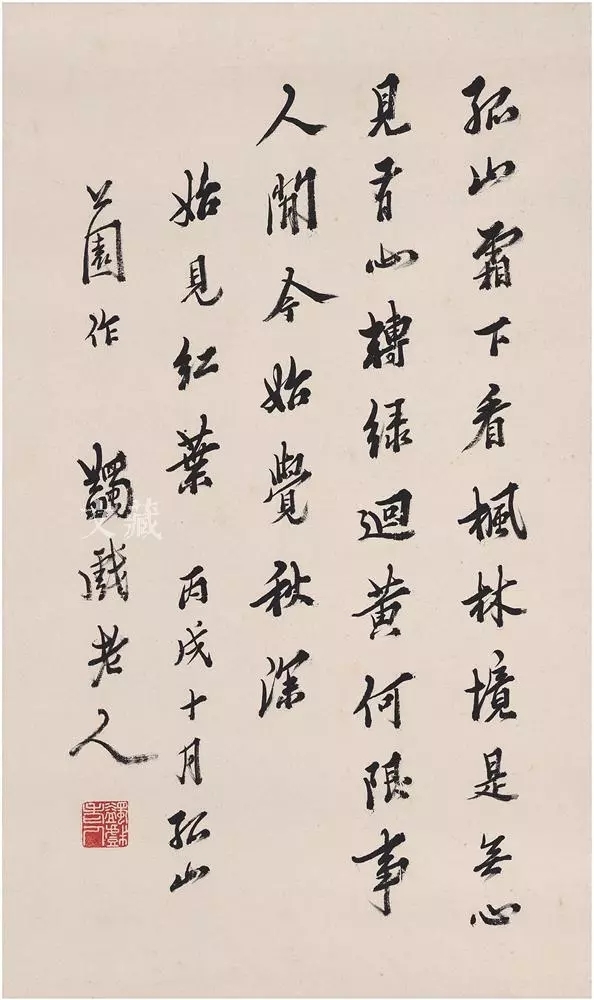 孤山霜下看楓林境是無心
見有心轉綠迴黃何限事
人間今始覺秋深
始見紅葉 丙戌十月孤山
公園作 蠲戲老人
蠲戲老人
文藏